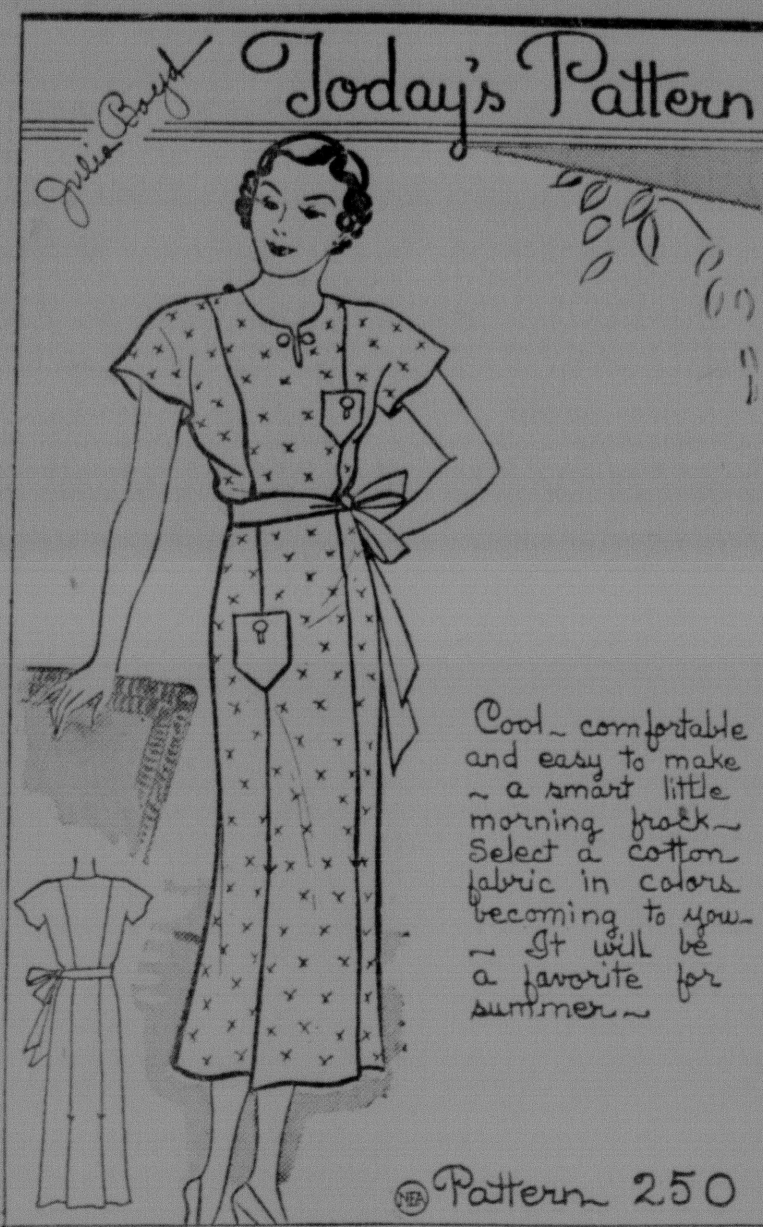 Today's Pattern
Julia Boyd
Cool~ comfortable
and easy to make
~ a smart little
morning frock~
Select a cotton
fabric in colors
becoming to you~
~ It will be
a favorite for
summer~
NEA Pattern 250